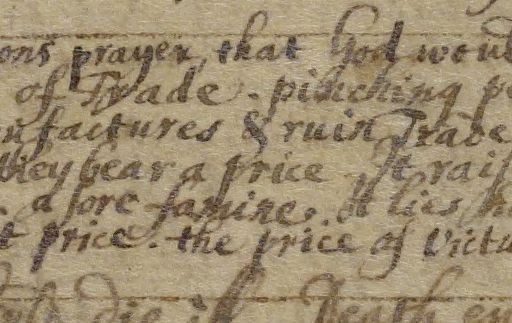 ons prayer, that God would
of Trade. pinching po
nufactures & ruin Trade
they bear a price It rais
a sore famine. It lies h
t price. the price of victu
die if Death